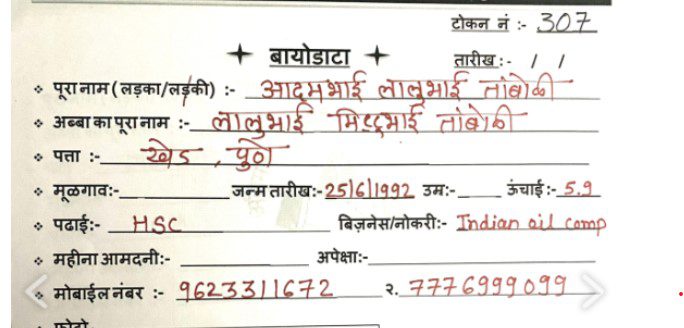 टोकन नं :- 307
बायोडाटा
तारीख :- / /
पूरा नाम (लड़का/लड़की) :- आदमभाई लालुभाई तांबोळी
अब्बा का पूरा नाम :- लालुभाई मिठ्ठुभाई तांबोळी
पत्ता :- खेड, पुणे
मूळगाव:- जन्म तारीख:- 25/6/1992 उम्र:- ऊंचाई:- 5.9
पढाई:- HSC बिज़नेस/नोकरी:- Indian oil comp
महीना आमदनी:- अपेक्षा:-
मोबाईल नंबर :- 9623311672 २. 7776999099
फोटो